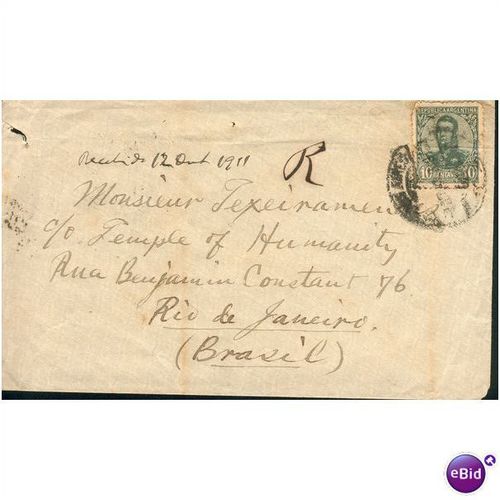 REPUBLICA ARGENTINA
10 CENTAVOS 10
Recebido 12 Out 1911
R
Monsieur Texeiramen
c/o Temple of Humanity
Rua Benjamin Constant 76
Rio de Janeiro.
(Brasil)
eBid